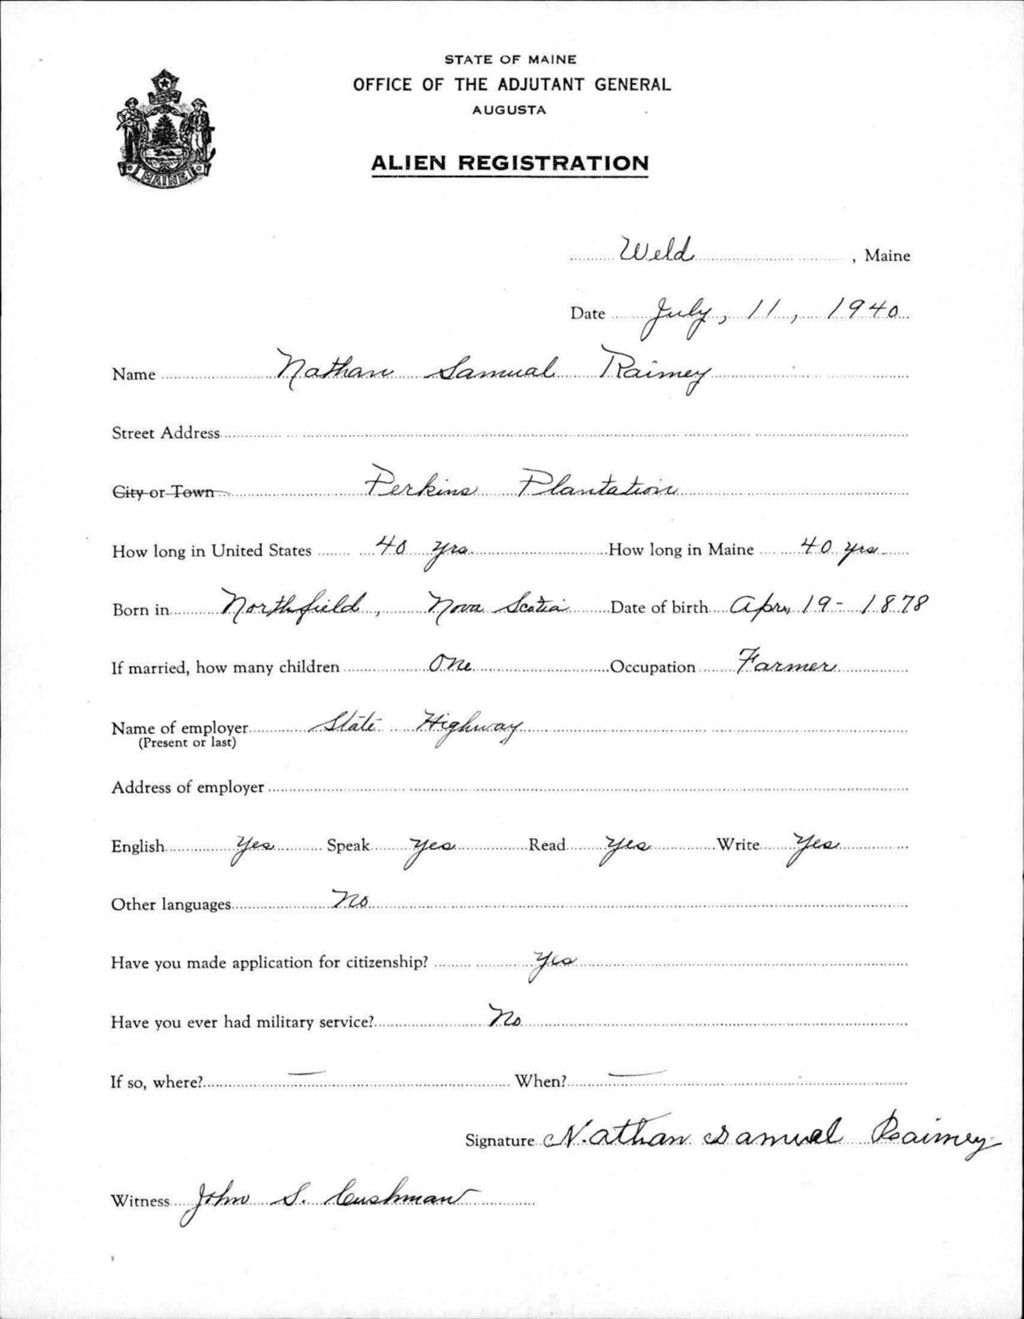 STATE OF MAINE
OFFICE OF THE ADJUTANT GENERAL
AUGUSTA
ALIEN REGISTRATION
MAINE
Weld, Maine
Date July, 11, 1940
Name Nathan Samual Raimey
Street Address
City or Town Perkins Plantation
How long in United States 40 yrs How long in Maine 40 yrs
Born in Northfield, Nova Scotia Date of birth Apr, 19 - 1878
If married, how many children One Occupation Farmer
Name of employer State Highway
(Present or last)
Address of employer
English Yes Speak Yes Read Yes Write Yes
Other languages No
Have you made application for citizenship? Yes
Have you ever had military service? No
If so, where? — When? —
Signature Nathan Samual Raimey
Witness John S. Cushman